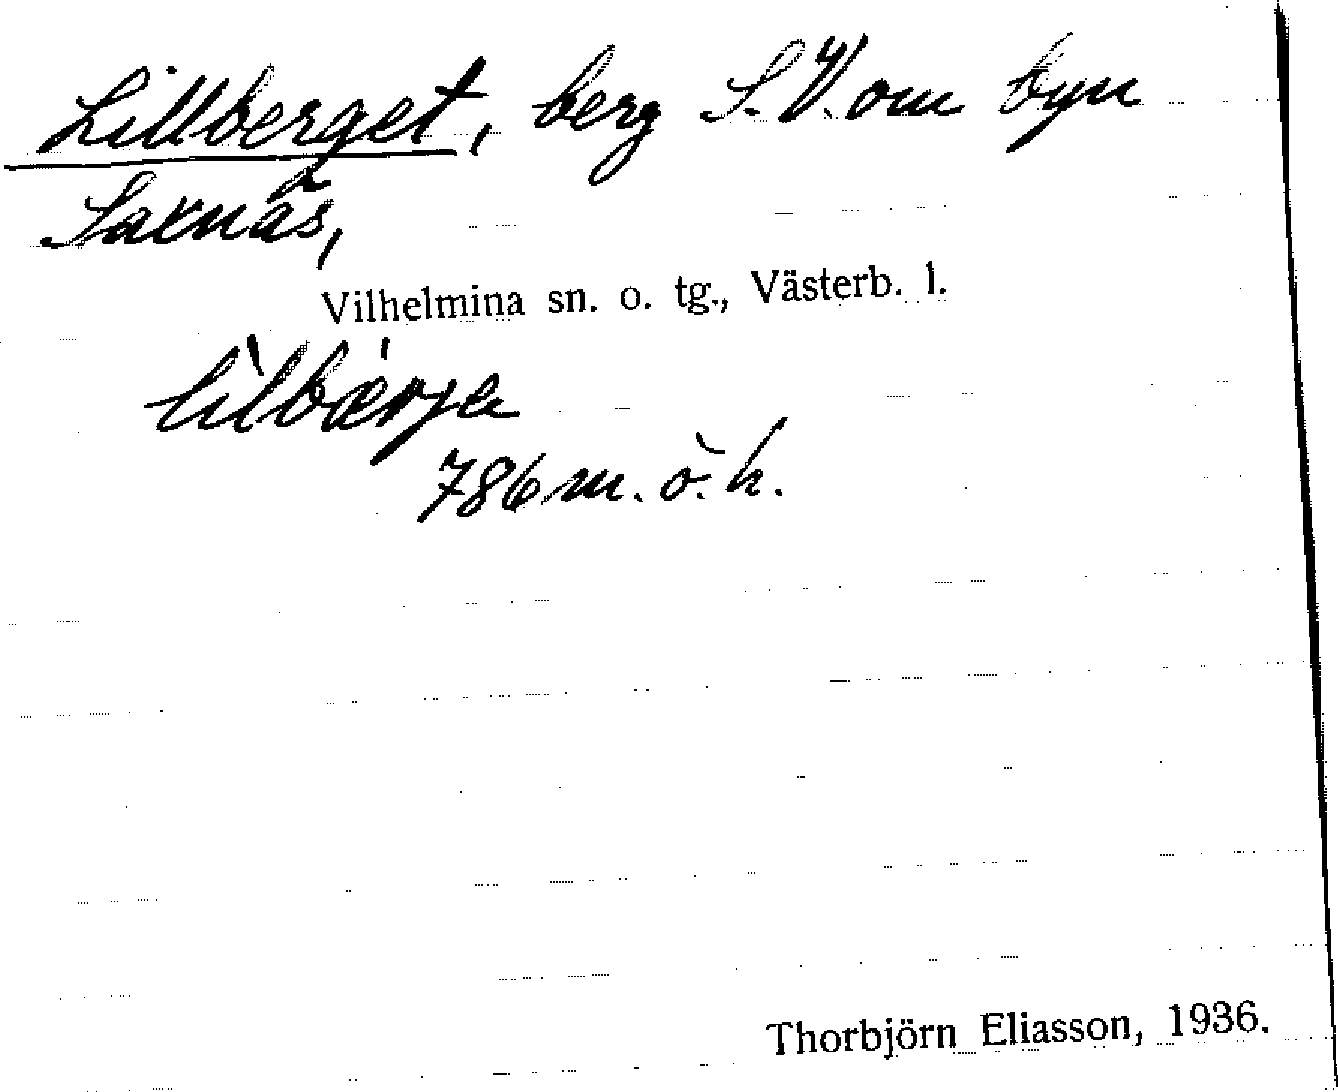 Lillberget, berg S.V. om byn
Saxnäs,
Vilhelmina sn. o. tg., Västerb. l.
lìlbǽrjа
786 m. ö. h.
Thorbjörn Eliasson, 1936.